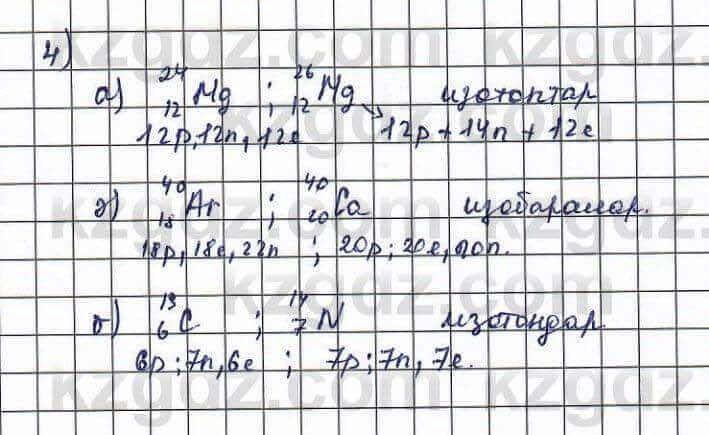 4)
а) ²⁴₁₂Mg ; ²⁶₁₂Mg изотоптар
12p, 12n, 12e 12p + 14n + 12e
ә) ⁴⁰₁₈Ar ; ⁴⁰₂₀Ca изобаралар.
18p, 18e, 22n ; 20p; 20e, 20n.
б) ¹³₆C ; ¹⁴₇N изотондар
6p; 7n, 6e ; 7p; 7n, 7e.
kzgdz.com